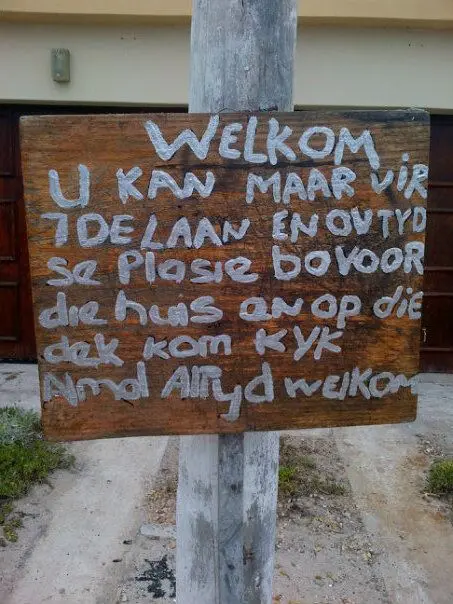 WELKOM
U KAN MAAR VIR
7DE LAAN EN OUTYD
se Plasie bovoor
die huis an op die
dek kom KYK
Almal AlTyd welkom